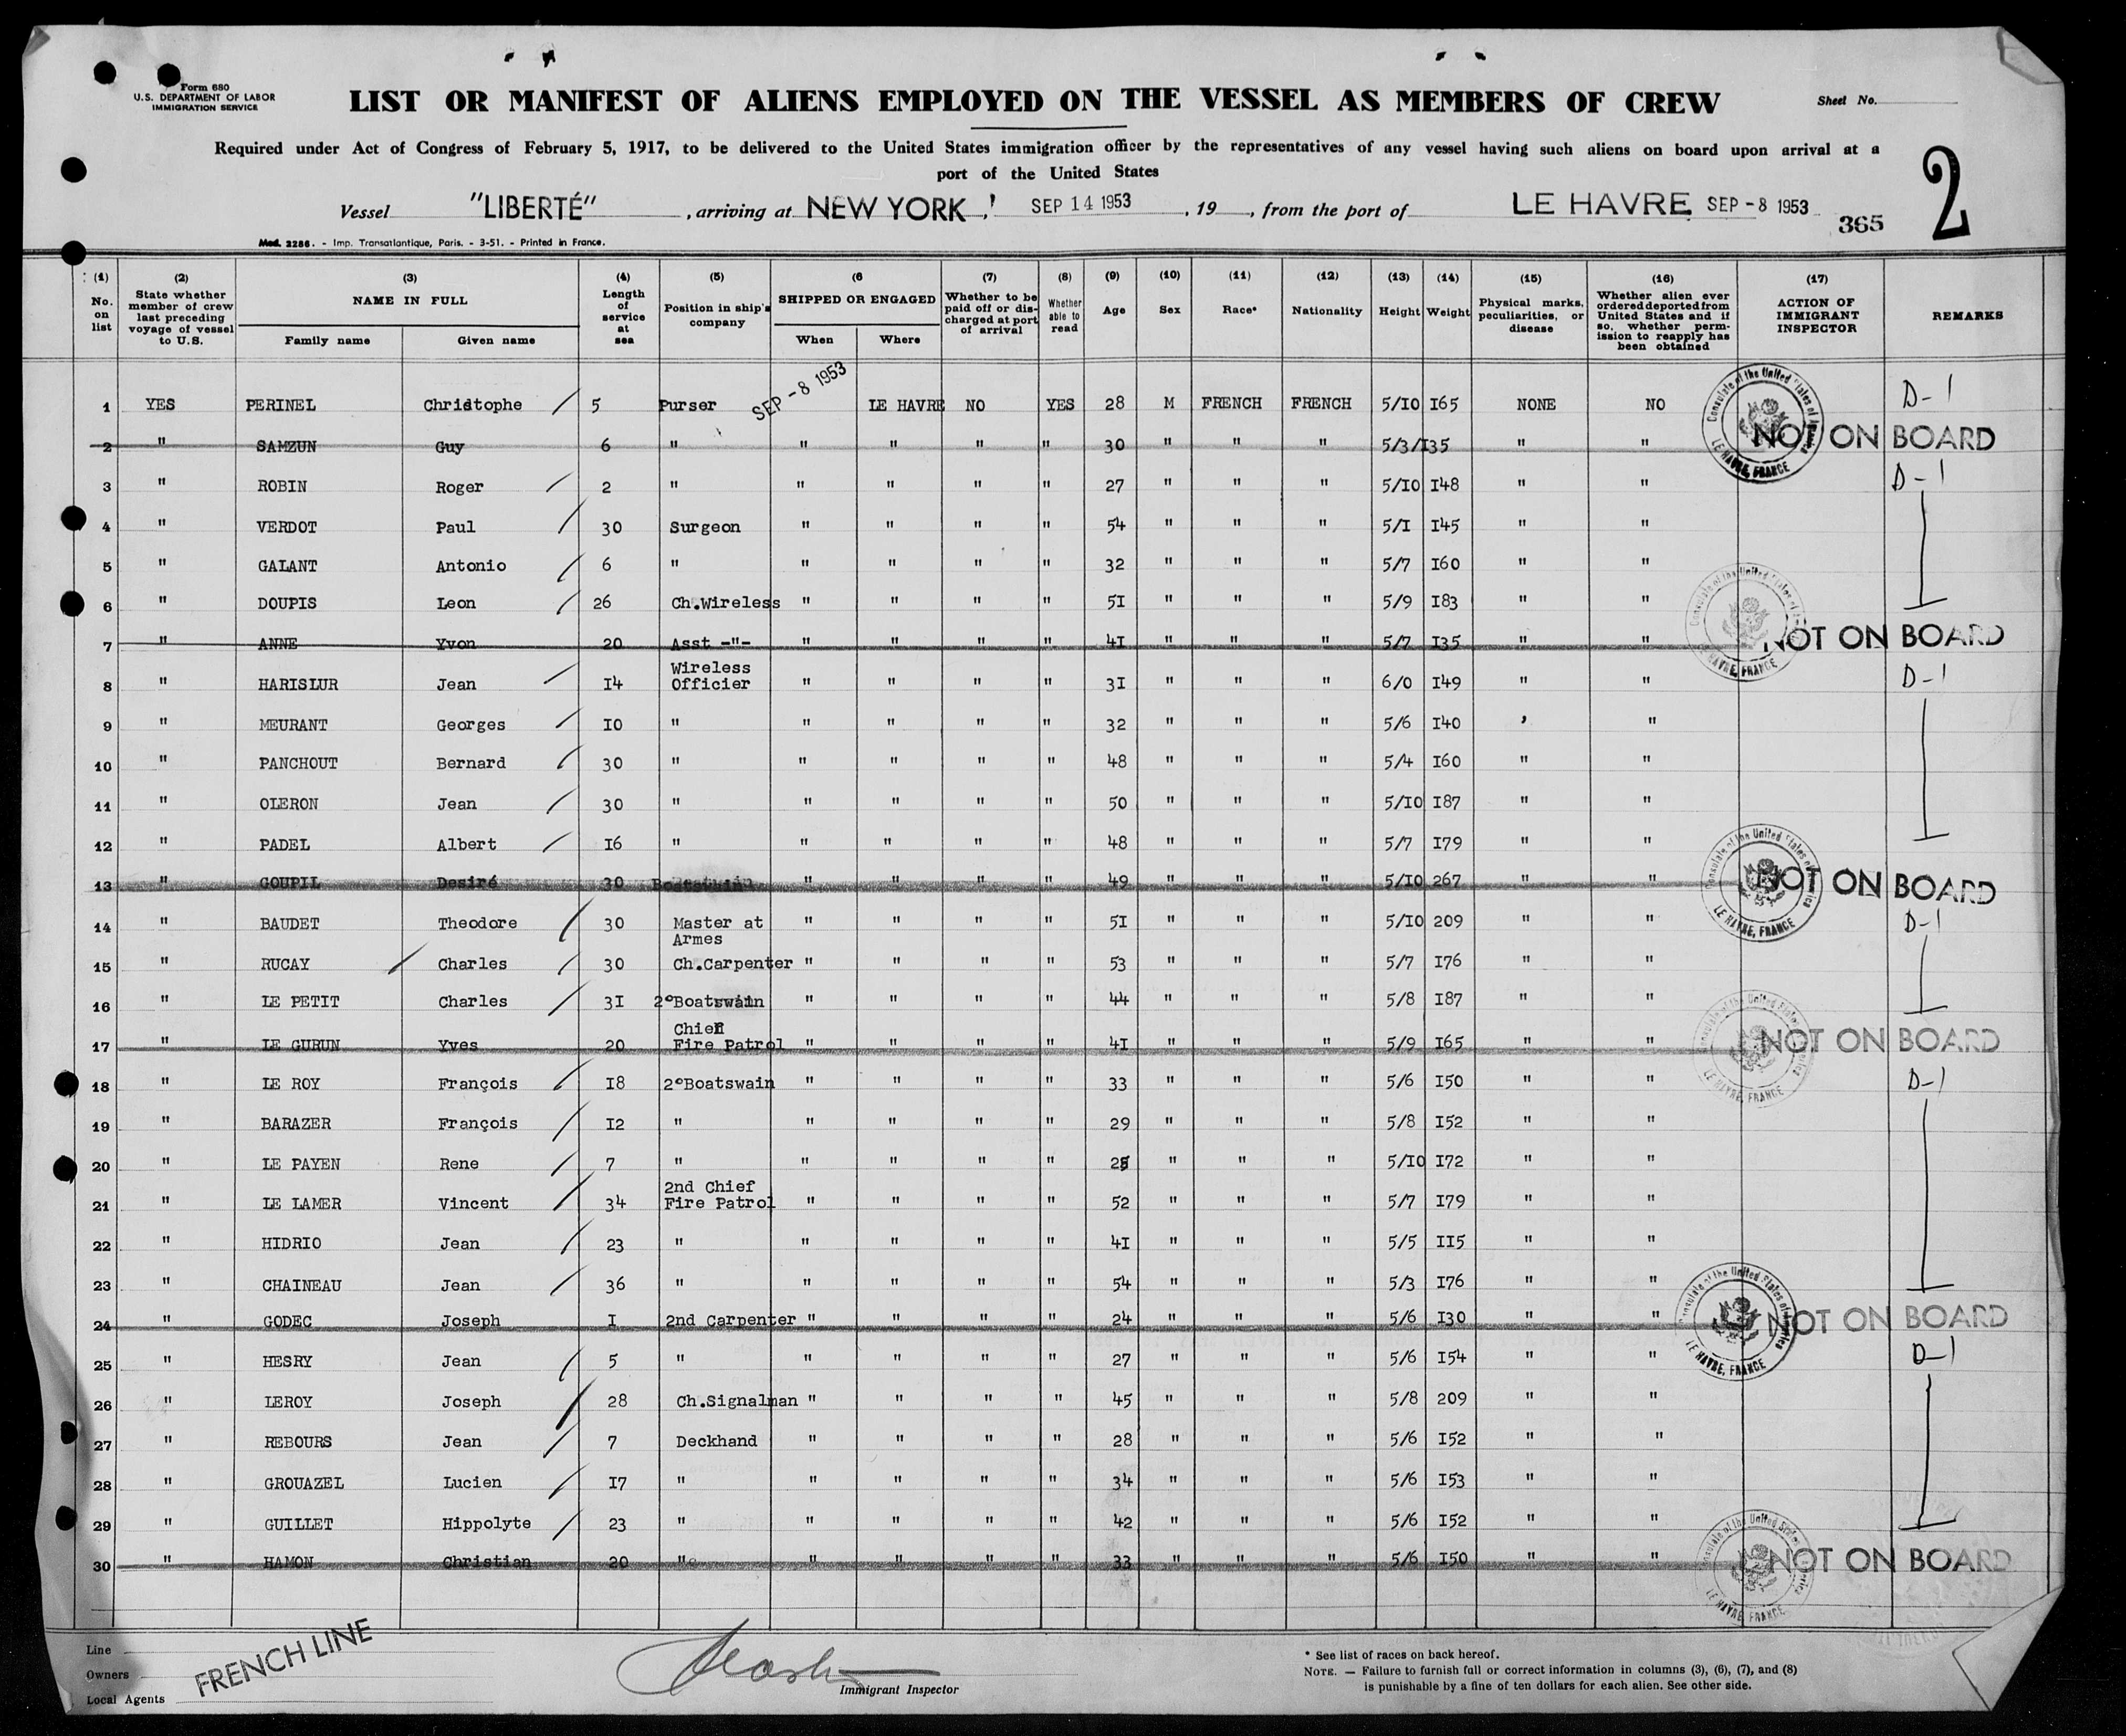 Form 680
U.S. DEPARTMENT OF LABOR
IMMIGRATION SERVICE
LIST OR MANIFEST OF ALIENS EMPLOYED ON THE VESSEL AS MEMBERS OF CREW
Sheet No.
Required under Act of Congress of February 5, 1917, to be delivered to the United States immigration officer by the representatives of any vessel having such aliens on board upon arrival at a
port of the United States
2
Vessel "LIBERTÉ" , arriving at NEW YORK , SEP 14 1953 , 19 , from the port of LE HAVRE SEP -8 1953
365
Mod. 2286. - Imp. Transatlantique, Paris. - 3-51. - Printed in France.
(1) No. on list (2) State whether member of crew last preceding voyage of vessel to U.S. (3) NAME IN FULL Family name Given name (4) Length of service at sea (5) Position in ship's company (6 SHIPPED OR ENGAGED When Where (7) Whether to be paid off or discharged at port of arrival (8) Whether able to read (9) Age (10) Sex (11) Race* (12) Nationality (13) Height (14) Weight (15) Physical marks, peculiarities, or disease (16) Whether alien ever ordered deported from United States and if so, whether permission to reapply has been obtained (17) ACTION OF IMMIGRANT INSPECTOR REMARKS
1 YES PERINEL Christophe 5 Purser SEP -8 1953 LE HAVRE NO YES 28 M FRENCH FRENCH 5/10 165 NONE NO D-1
2 " SAMZUN Guy 6 " " " " " 30 " " " 5/3/135 " " NOT ON BOARD
3 " ROBIN Roger 2 " " " " " 27 " " " 5/10 148 " " D-1
4 " VERDOT Paul 30 Surgeon " " " " 54 " " " 5/1 145 " "
5 " GALANT Antonio 6 " " " " " 32 " " " 5/7 160 " "
6 " DOUPIS Leon 26 Ch.Wireless " " " " 51 " " " 5/9 183 " "
7 " ANNE Yvon 20 Asst -"- " " " " 41 " " " 5/7 135 " " NOT ON BOARD
8 " HARISLUR Jean 14 Wireless Officier " " " " 31 " " " 6/0 149 " " D-1
9 " MEURANT Georges 10 " " " " " 32 " " " 5/6 140 ' "
10 " PANCHOUT Bernard 30 " " " " " 48 " " " 5/4 160 " "
11 " OLERON Jean 30 " " " " " 50 " " " 5/10 187 " "
12 " PADEL Albert 16 " " " " " 48 " " " 5/7 179 " "
13 " GOUPIL Desiré 30 Boatswain " " " " 49 " " " 5/10 267 " " NOT ON BOARD
14 " BAUDET Theodore 30 Master at Armes " " " " 51 " " " 5/10 209 " " D-1
15 " RUCAY Charles 30 Ch.Carpenter " " " " 53 " " " 5/7 176 " "
16 " LE PETIT Charles 31 2°Boatswain " " " " 44 " " " 5/8 187 " "
17 " LE GURUN Yves 20 Chief Fire Patrol " " " " 41 " " " 5/9 165 " " NOT ON BOARD
18 " LE ROY François 18 2°Boatswain " " " " 33 " " " 5/6 150 " " D-1
19 " BARAZER François 12 " " " " " 29 " " " 5/8 152 " "
20 " LE PAYEN Rene 7 " " " " " " " " 5/10 172 " "
21 " LE LAMER Vincent 34 2nd Chief Fire Patrol " " " " 52 " " " 5/7 179 " "
22 " HIDRIO Jean 23 " " " " " 41 " " " 5/5 115 " "
23 " CHAINEAU Jean 36 " " " " " 54 " " " 5/3 176 " "
24 " GODEC Joseph 1 2nd Carpenter " " " " 24 " " " 5/6 130 " " NOT ON BOARD
25 " HESRY Jean 5 " " " " " 27 " " " 5/6 154 " " D-1
26 " LEROY Joseph 28 Ch.Signalman " " " " 45 " " " 5/8 209 " "
27 " REBOURS Jean 7 Deckhand " " " " 28 " " " 5/6 152 " "
28 " GROUAZEL Lucien 17 " " " " " 34 " " " 5/6 153 " "
29 " GUILLET Hippolyte 23 " " " " " 42 " " " 5/6 152 " "
30 " HAMON Christian 20 " " " " " 33 " " " 5/6 150 " " NOT ON BOARD
Consulate of the United States of America
LE HAVRE, FRANCE
Consulate of the United States of America
LE HAVRE, FRANCE
Consulate of the United States of America
LE HAVRE, FRANCE
Consulate of the United States of America
LE HAVRE, FRANCE
Consulate of the United States of America
LE HAVRE, FRANCE
Consulate of the United States of America
LE HAVRE, FRANCE
Line
Owners
Local Agents
FRENCH LINE
Immigrant Inspector
* See list of races on back hereof.
NOTE. — Failure to furnish full or correct information in columns (3), (6), (7), and (8)
is punishable by a fine of ten dollars for each alien. See other side.